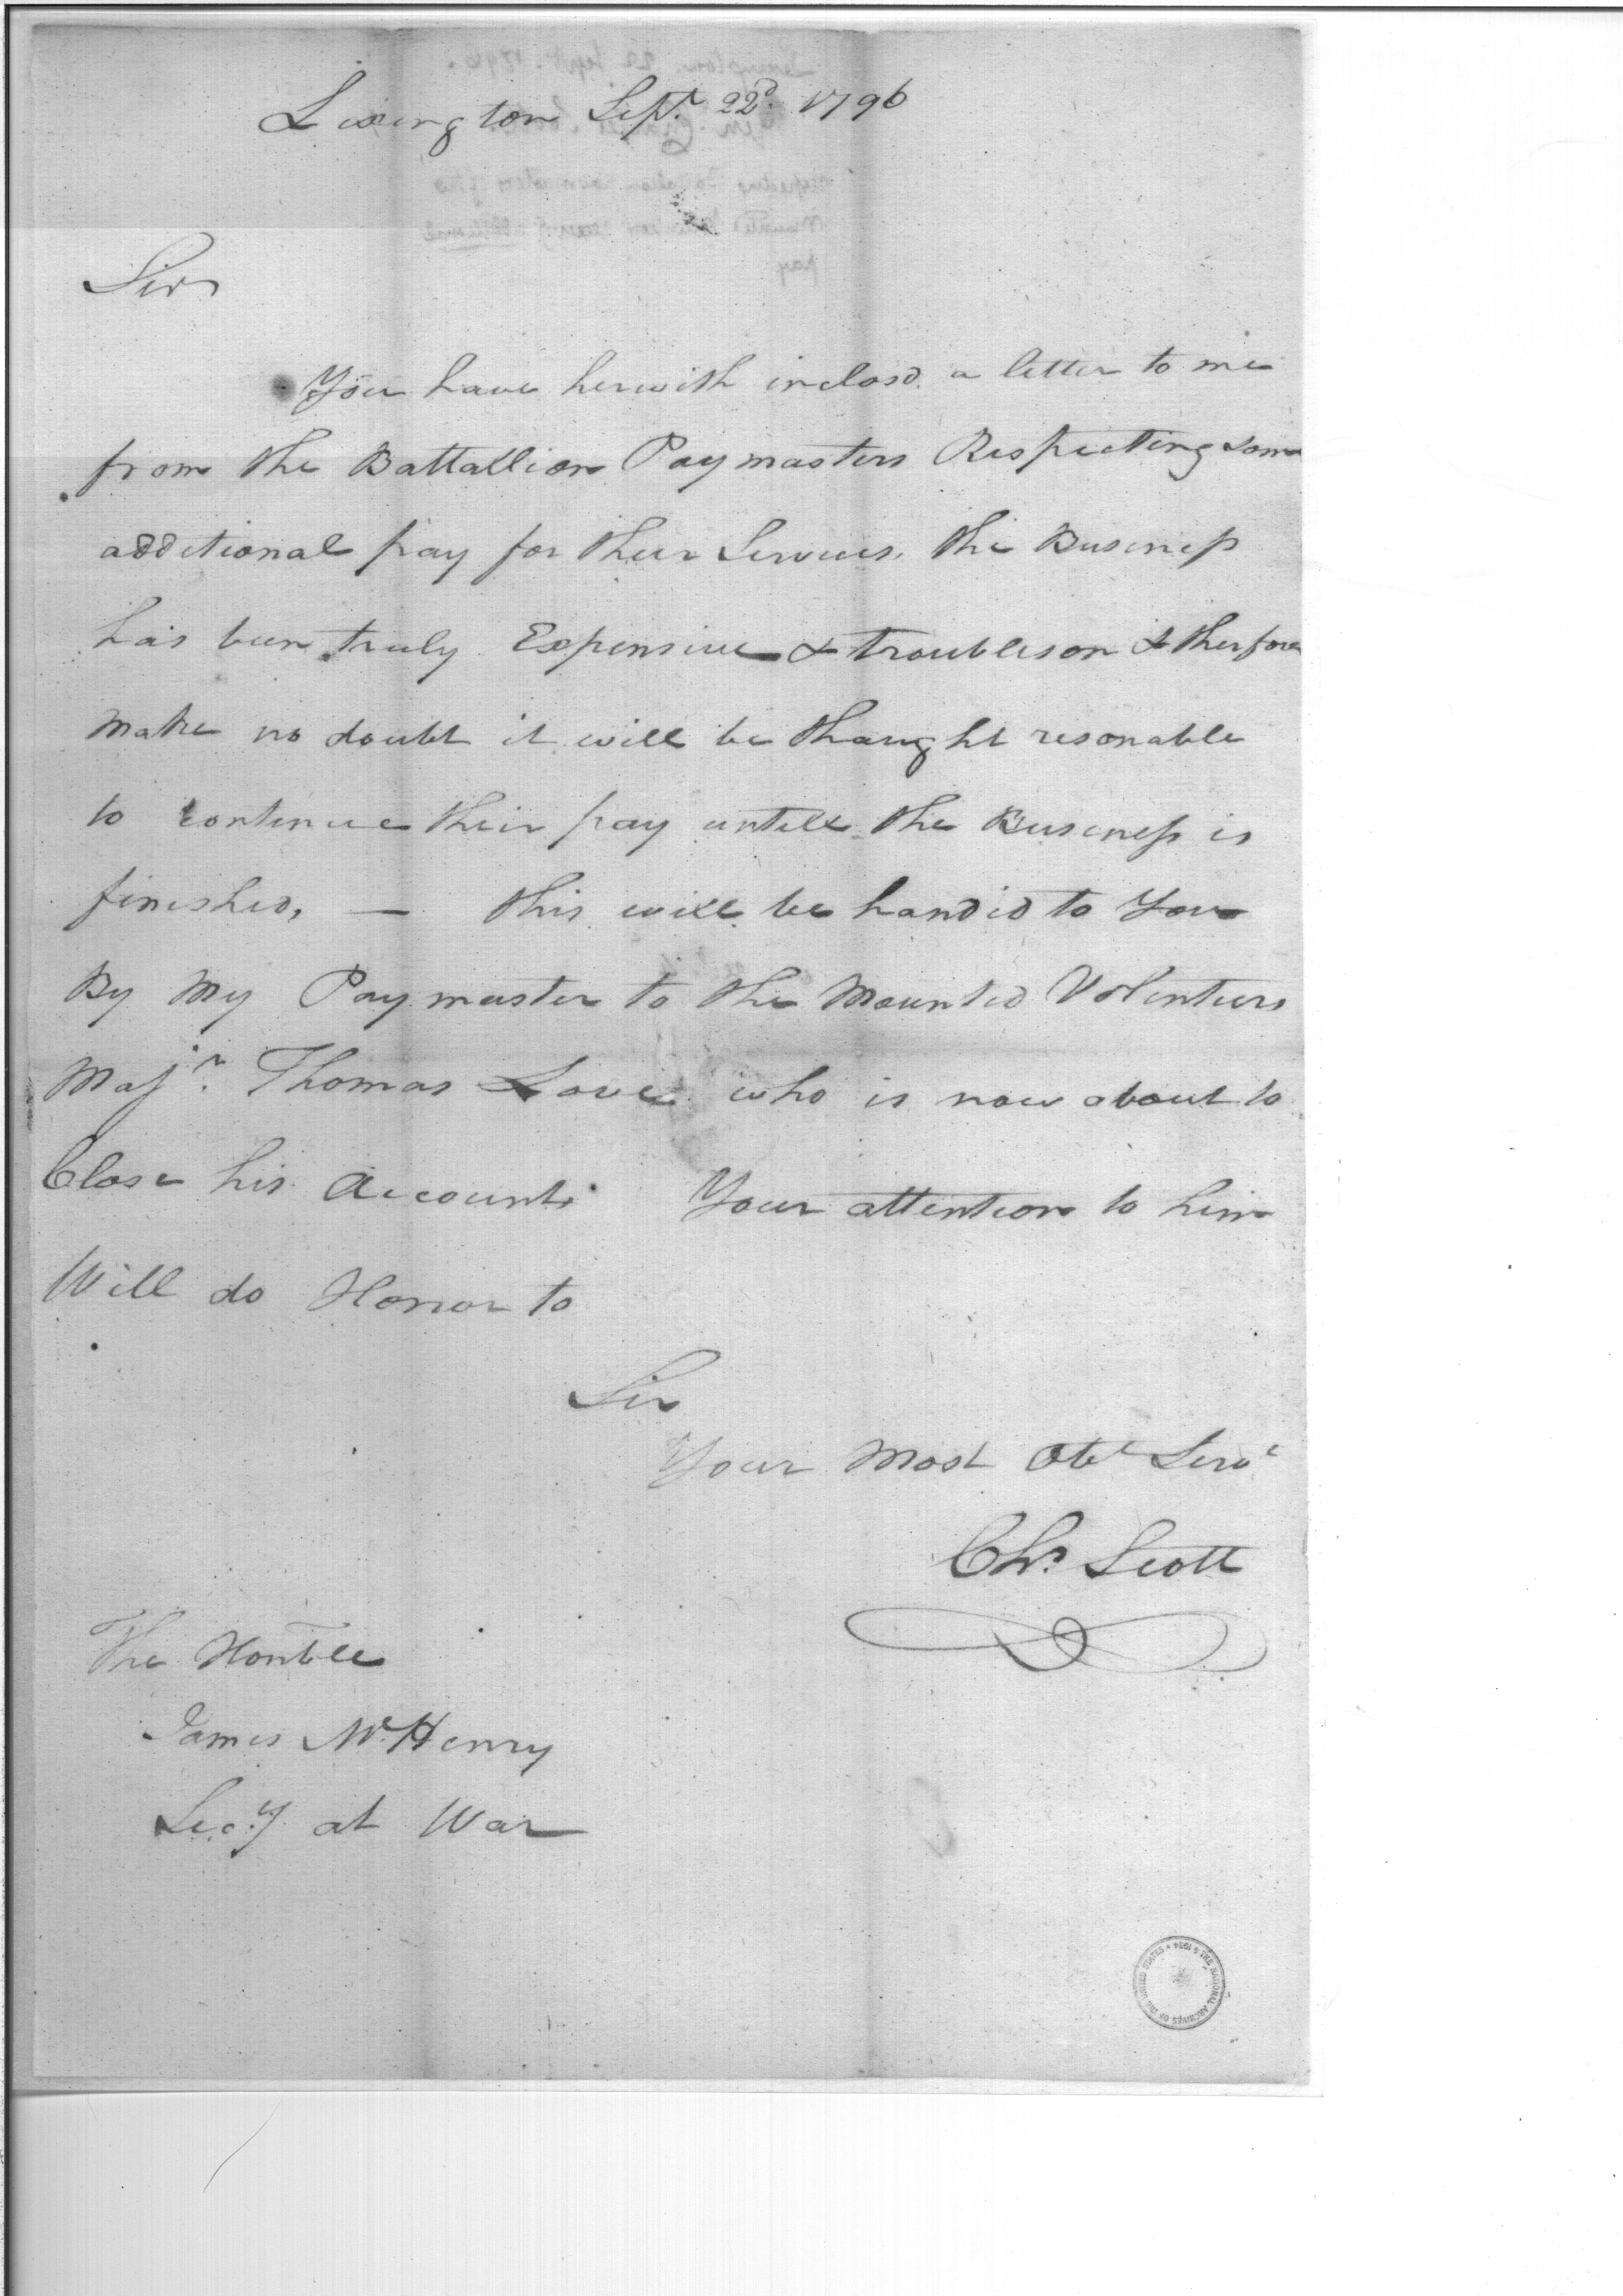 Lexington Sept. 22d. 1796
Sir
You have herwith inclosd. a letter to me
from the Battallion Paymasters Respecting som
additional pay for their Services, the Business
has been truly Expensive & troubleson & therfore
make no doubt it will be thaught resonable
to continue their pay untill the Business is
finished, — this will be handed to You
By My Paymaster to the Mounted Volenteers
Majr. Thomas Love who is now about to
Close his Accounts Your attention to him
Will do Honor to
Sir
Your most Obt Servt
Chs. Scott
The Honble
James McHenry
Secy. at War
THE NATIONAL ARCHIVES OF THE UNITED STATES * 1934 *